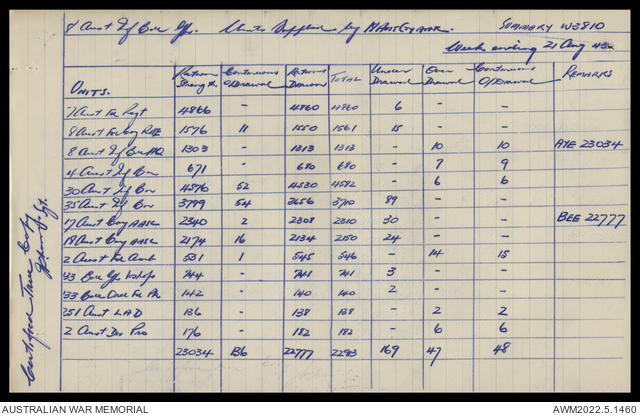 8 Aust Inf Bde Gp. Units Supplied by 17 Aust Coy AASC. SUMMARY W3810
Week ending 21 Aug 43
UNITS. Ration Strength Continuous O/Drawal Rations Drawn TOTAL Under Drawal Over Drawal Continuous O/Drawal REMARKS
7 Aust Fd Regt 4866 - 4860 4860 6 - -
8 Aust Fd Coy RAE 1576 11 1550 1561 15 - -
8 Aust Inf Bde HQ 1303 - 1313 1313 - 10 10 AYE 23034
4 Aust Inf Bn 671 - 680 680 - 7 9
30 Aust Inf Bn 4576 52 4530 4582 - 6 6
35 Aust Inf Bn 3799 54 3656 3710 89 - -
17 Aust Coy AASC 2340 2 2308 2310 30 - - BEE 22777
18 Aust Coy AASC 2174 16 2134 2150 24 - -
2 Aust Fd Amb 531 1 545 546 - 14 15
33 Bde Gp W/shops 744 - 741 741 3 - -
33 Bde Ord Fd Pk 142 - 140 140 2 - -
251 Aust LAD 136 - 138 138 - 2 2
2 Aust Div Pro 176 - 182 182 - 6 6
23034 136 22777 169 47 48
Certified True Copy
Sgt.
AUSTRALIAN WAR MEMORIAL
AWM2022.5.1460